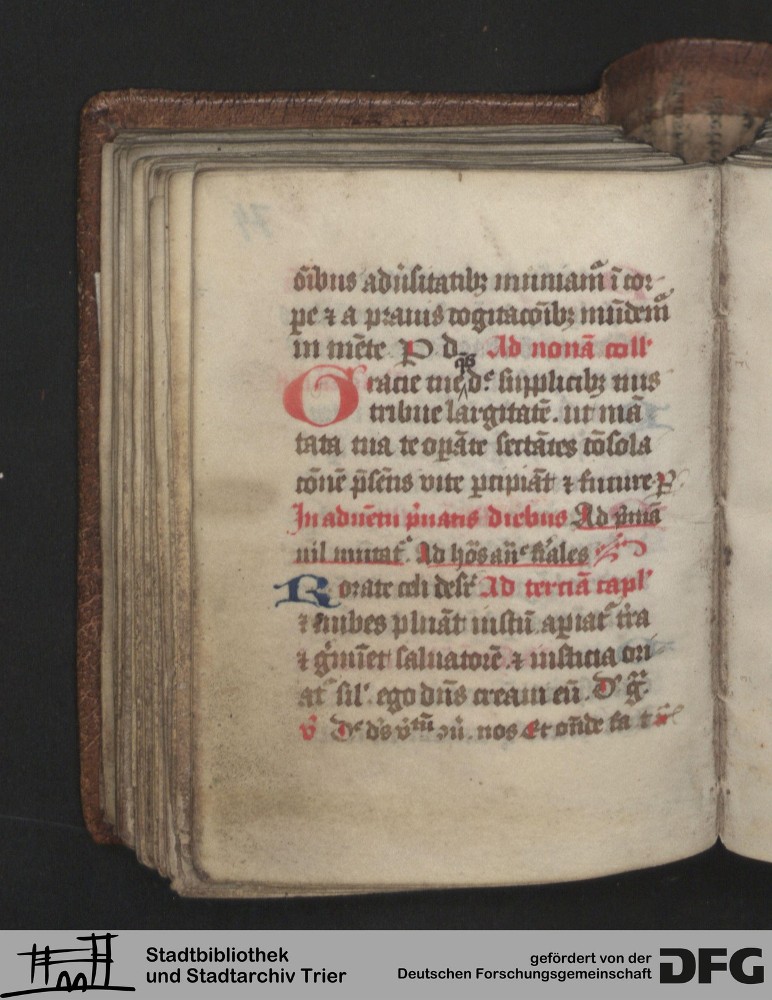 o̅ibus adu̅sitatibꝫ muniam̃ ĩ cor-
pe ⁊ a prauis cogitaco̅ibꝫ mũdem̃
in me̅te P d. Ad nonã coll'
Gracie tue qs ds supplicibꝫ tuis
tribue largitatẽ. ut mã
tata tua te opãte sectãtes co̅sola
co̅nẽ p̃se̅tis vite ꝑcipiãt ⁊ future ꝑ
In aduẽtu p̃uatis diebus Ad p̃mã
nil mutat̃. Ad ho̅s añe fr̃ales
Rorate celi desr̃ Ad terciã capl'
⁊ nubes pluãt iustũ apiat̃ tr̃a
⁊ gm̃et saluatorẽ ⁊ iusticia ori
at̃ sil' ego dñs creaui eũ. D g̃.
v̉ Ds ds v̉tũ ↄũ. nos Et oñde fa t
Stadtbibliothek
und Stadtarchiv Trier
gefördert von der
Deutschen Forschungsgemeinschaft
DFG